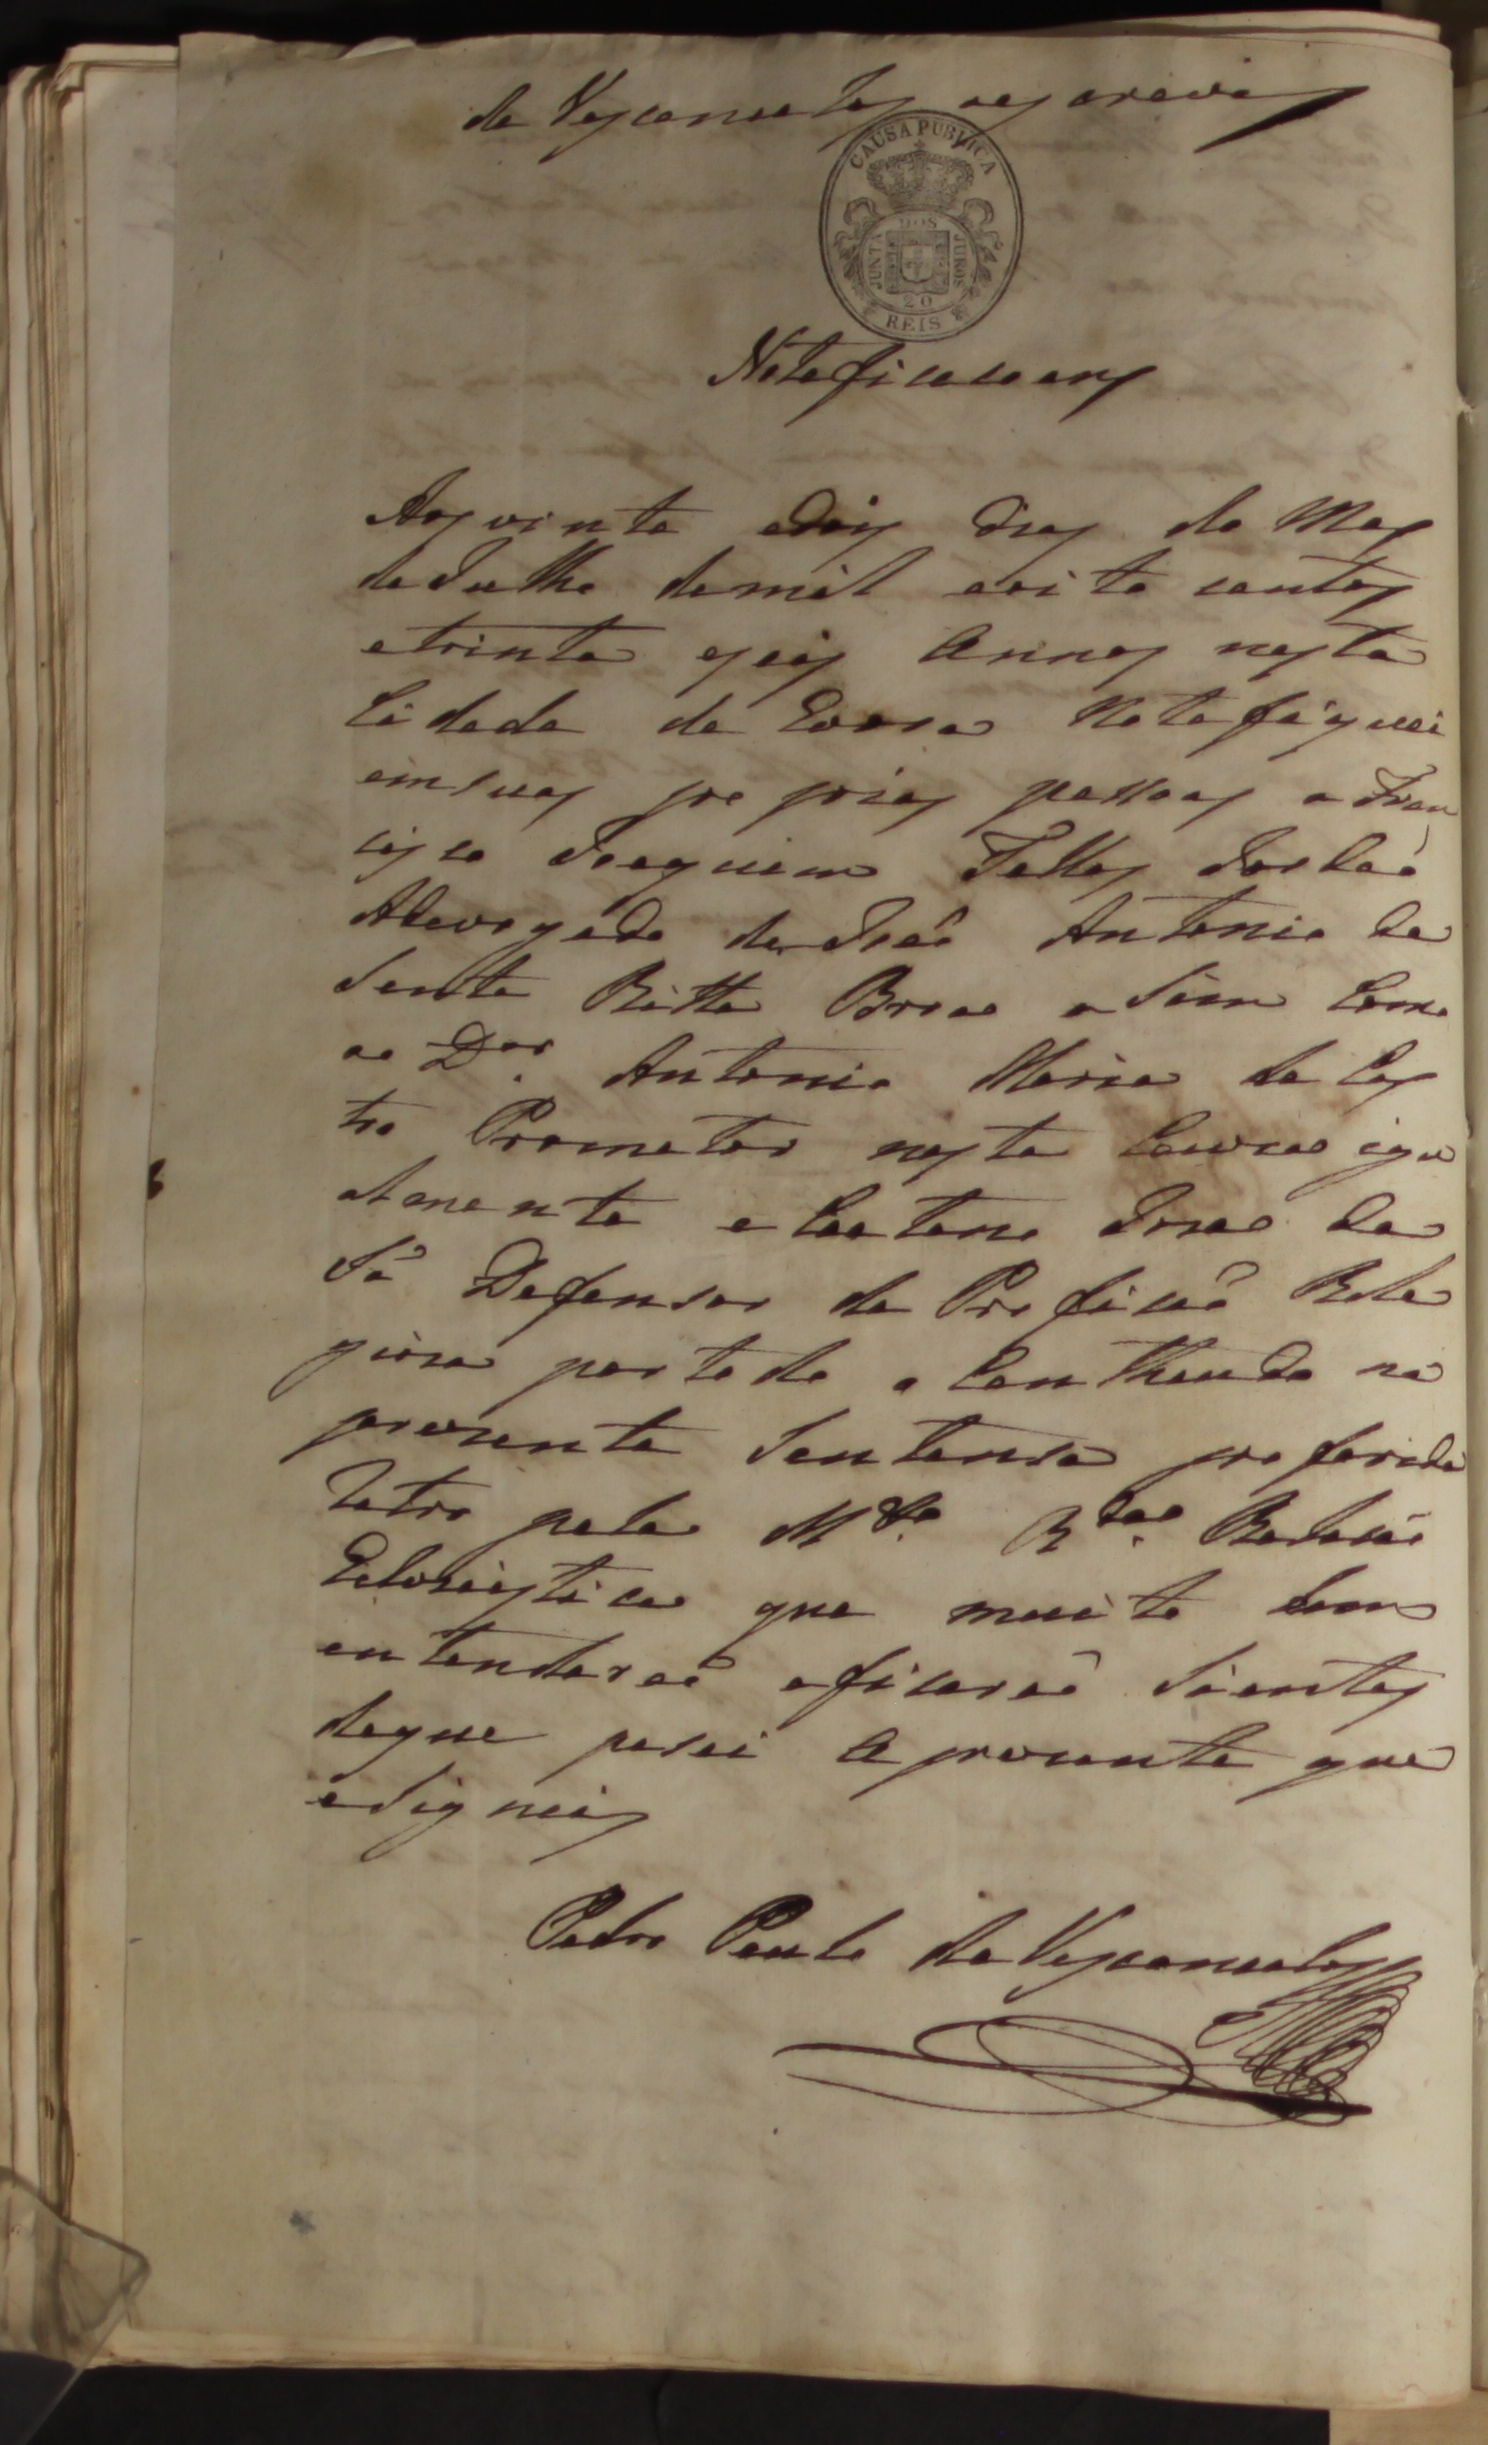 de Vasconcelos as crevy
CAUSA PUBLICA
JUNTA DOS JUROS
20
REIS
Notefiscacam
Aos vinte edois Dias do Mes
deJulho demil eoito centos
etrinta eseis Annos nesta
Cidade de Evora Notefiquei
emsuas proprias pessoas a Fran
cisco Joaquim Telles Jordaõ
Adevogado deJoaõ Antonio de
Santa Ritta Broa asim Como
ao Dor. Antonio Maria de Cas
tro Promotor nesta Causa igu
almente eCaetano Jose de
Sá Defensor da Profisaõ Rele
giosa portodo oContheudo na
presente Sentensa proferida
retro pela Mto. Rda. Relasaõ
Eclosiastica que muito bem
entenderaõ eficaraõ Sientes
deque pasei Aprezente que
aSignei
Pedro Paulo deVasconcelos